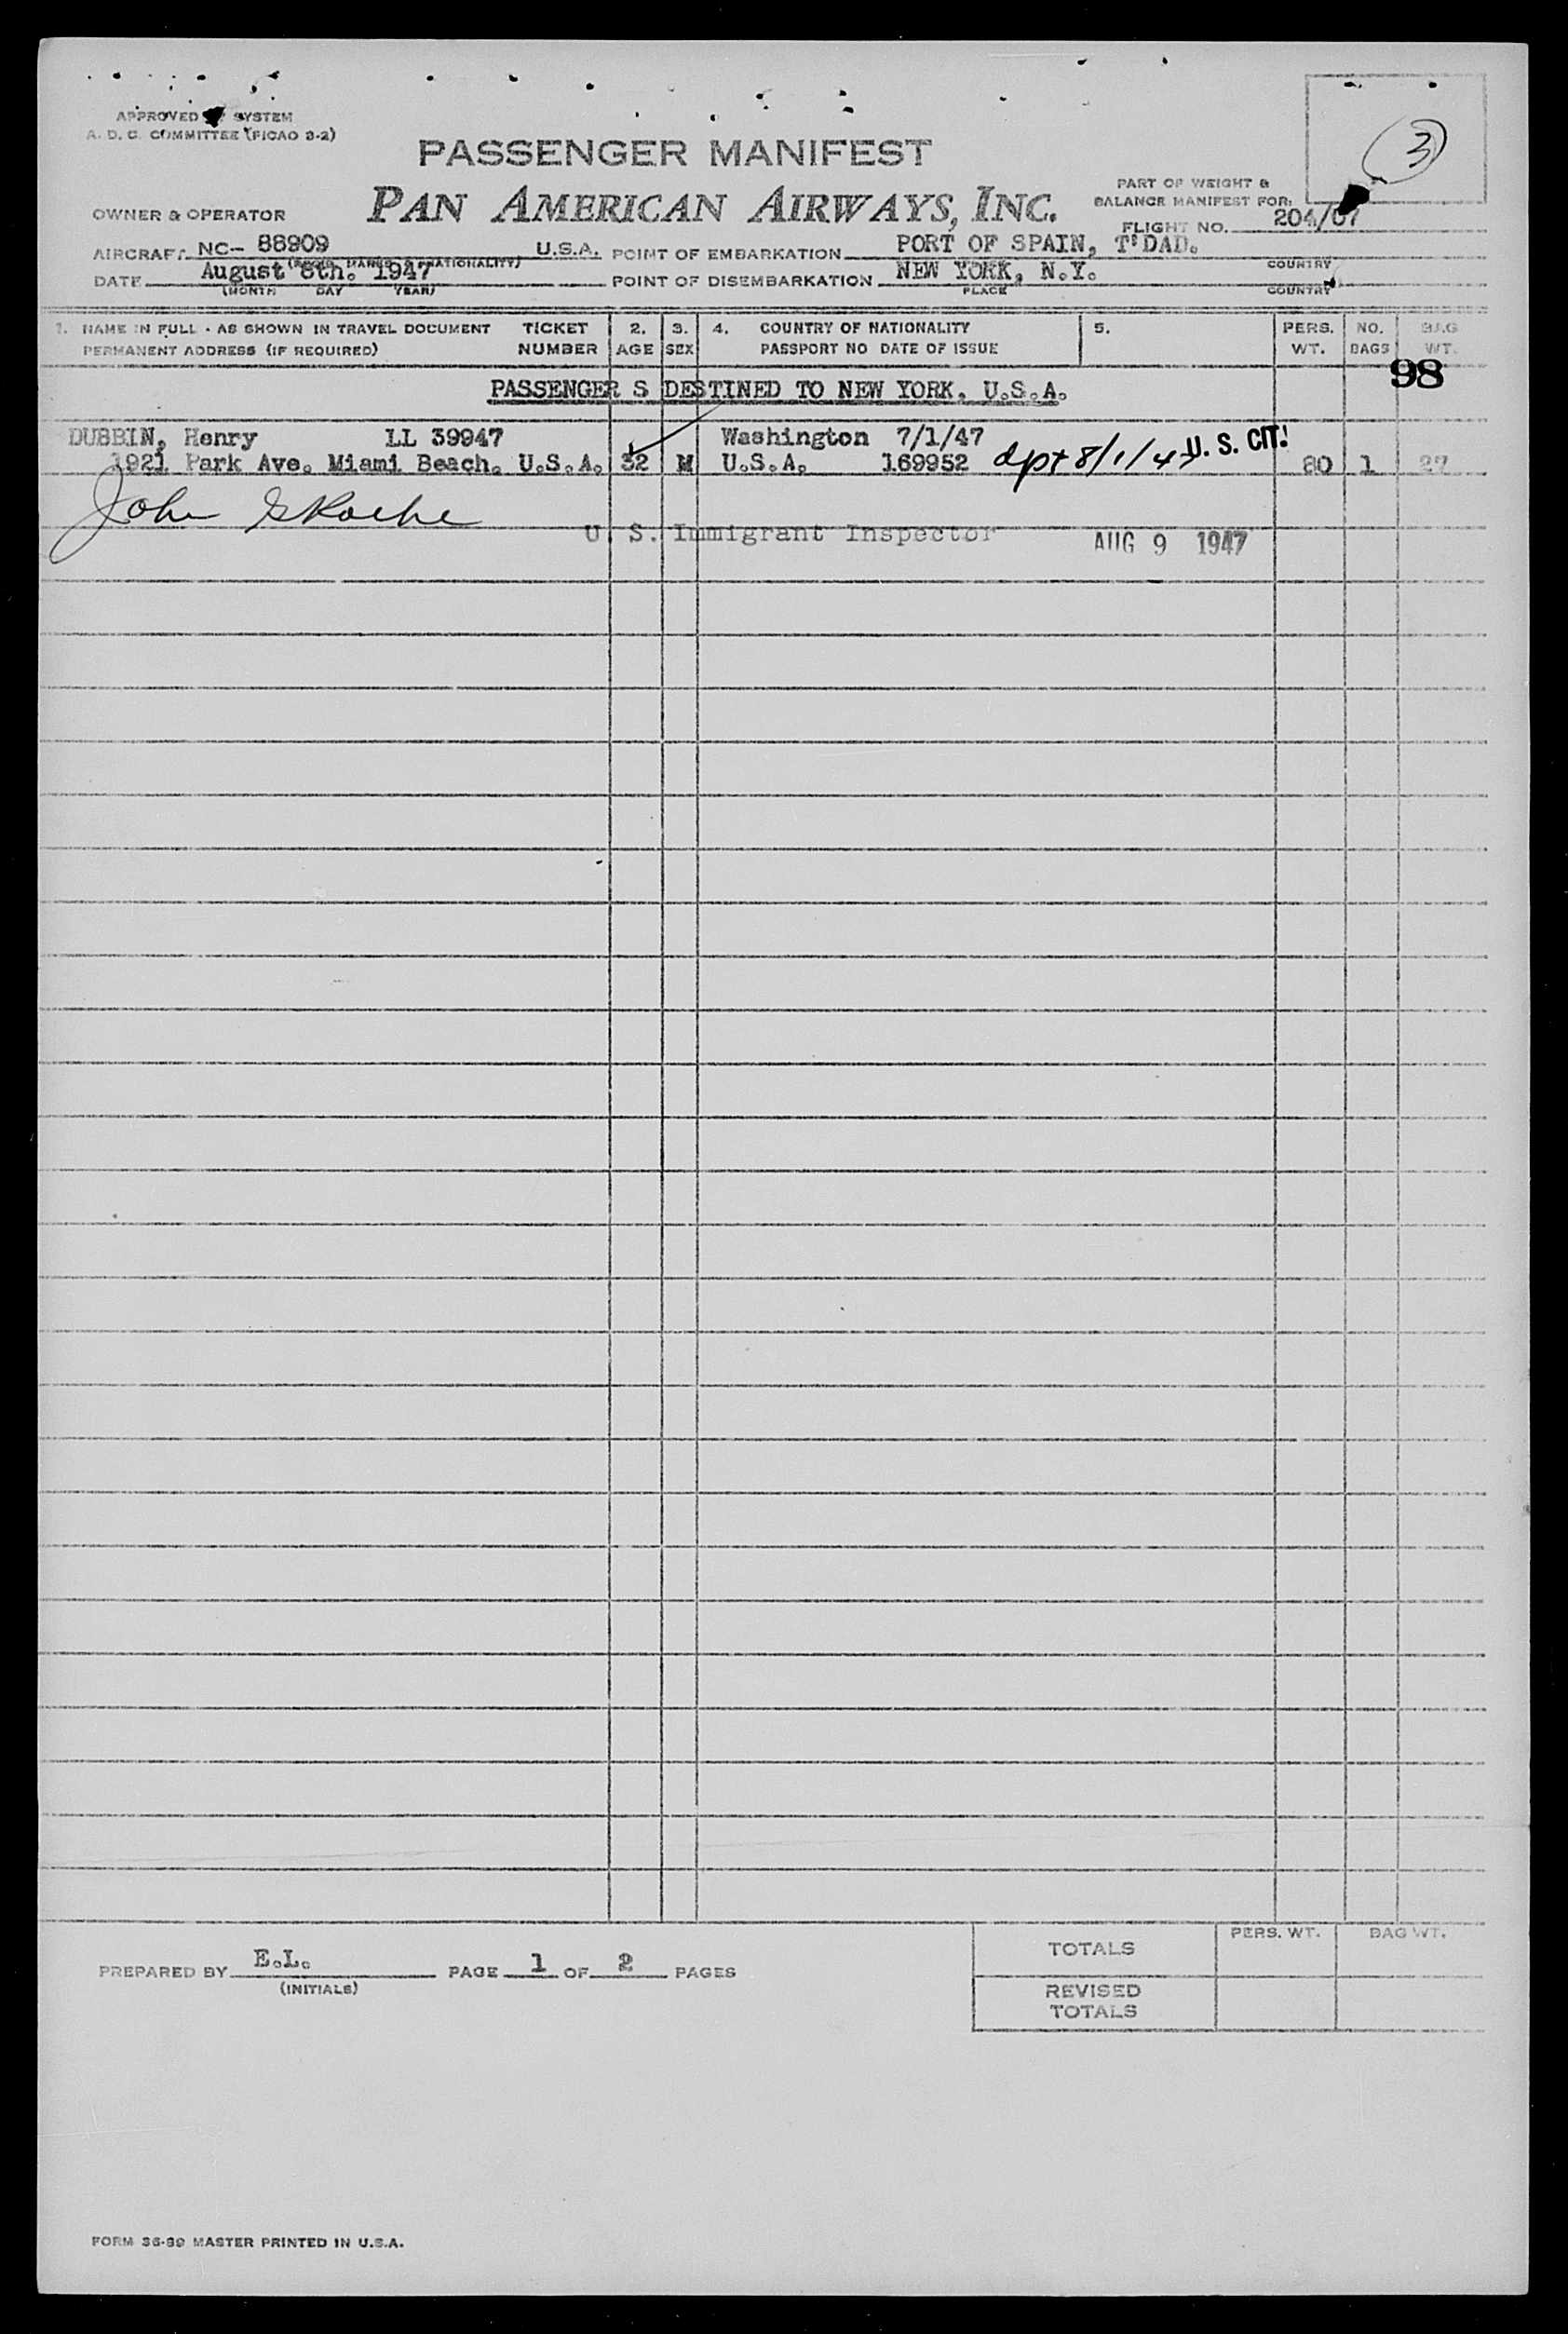 APPROVED SYSTEM
A. D. C. COMMITTEE (PICAO 3-2)
3
PASSENGER MANIFEST
PAN AMERICAN AIRWAYS, INC.
PART OF WEIGHT &
BALANCE MANIFEST FOR:
OWNER & OPERATOR
FLIGHT NO. 204/07
AIRCRAFT NC- 88909 U.S.A. POINT OF EMBARKATION PORT OF SPAIN, T'DAD.
COUNTRY
DATE August 8th. 1947 POINT OF DISEMBARKATION NEW YORK, N.Y.
(MONTH DAY YEAR) PLACE COUNTRY
1. NAME IN FULL - AS SHOWN IN TRAVEL DOCUMENT TICKET 2. 3. 4. COUNTRY OF NATIONALITY 5. PERS. NO. BAG
PERMANENT ADDRESS (IF REQUIRED) NUMBER AGE SEX PASSPORT NO DATE OF ISSUE WT. BAGS WT.
98
PASSENGER S DESTINED TO NEW YORK, U.S.A.
DUBBIN, Henry LL 39947 Washington 7/1/47
1921 Park Ave. Miami Beach. U.S.A. 32 M U.S.A. 169952 dpt 8/1/47 U. S. CIT. 80 1 27
John
U. S. Immigrant Inspector AUG 9 1947
PREPARED BY E.L. PAGE 1 OF 2 PAGES
(INITIALS)
PERS. WT. BAG WT.
TOTALS
REVISED
TOTALS
FORM 36-99 MASTER PRINTED IN U.S.A.